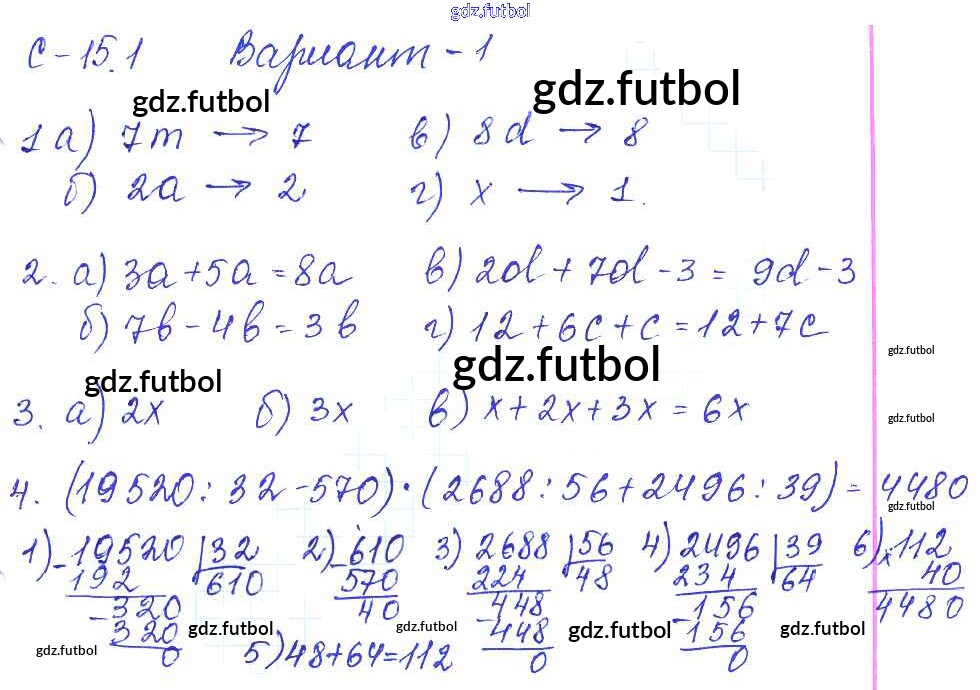 gdz.futbol
С-15.1 Вариант-1
gdz.futbol gdz.futbol
1 а) 7m → 7 в) 8d → 8
б) 2a → 2 г) x → 1.
2. а) 3a + 5a = 8a в) 2d + 7d - 3 = 9d - 3
б) 7b - 4b = 3b г) 12 + 6c + c = 12 + 7c
gdz.futbol
gdz.futbol gdz.futbol
3. а) 2x б) 3x в) x + 2x + 3x = 6x
gdz.futbol
4. (19520 : 32 - 570) · (2688 : 56 + 2496 : 39) = 4480
gdz.futbol
1) - 19520 | 32 2) - 610 3) 2688 | 56 4) 2496 | 39 6) x 112
192 610 570 224 48 234 64 40
- 320 40 - 448 - 156 4480
320 448 156
gdz.futbol gdz.futbol gdz.futbol gdz.futbol
0 5) 48 + 64 = 112 0 0
gdz.futbol